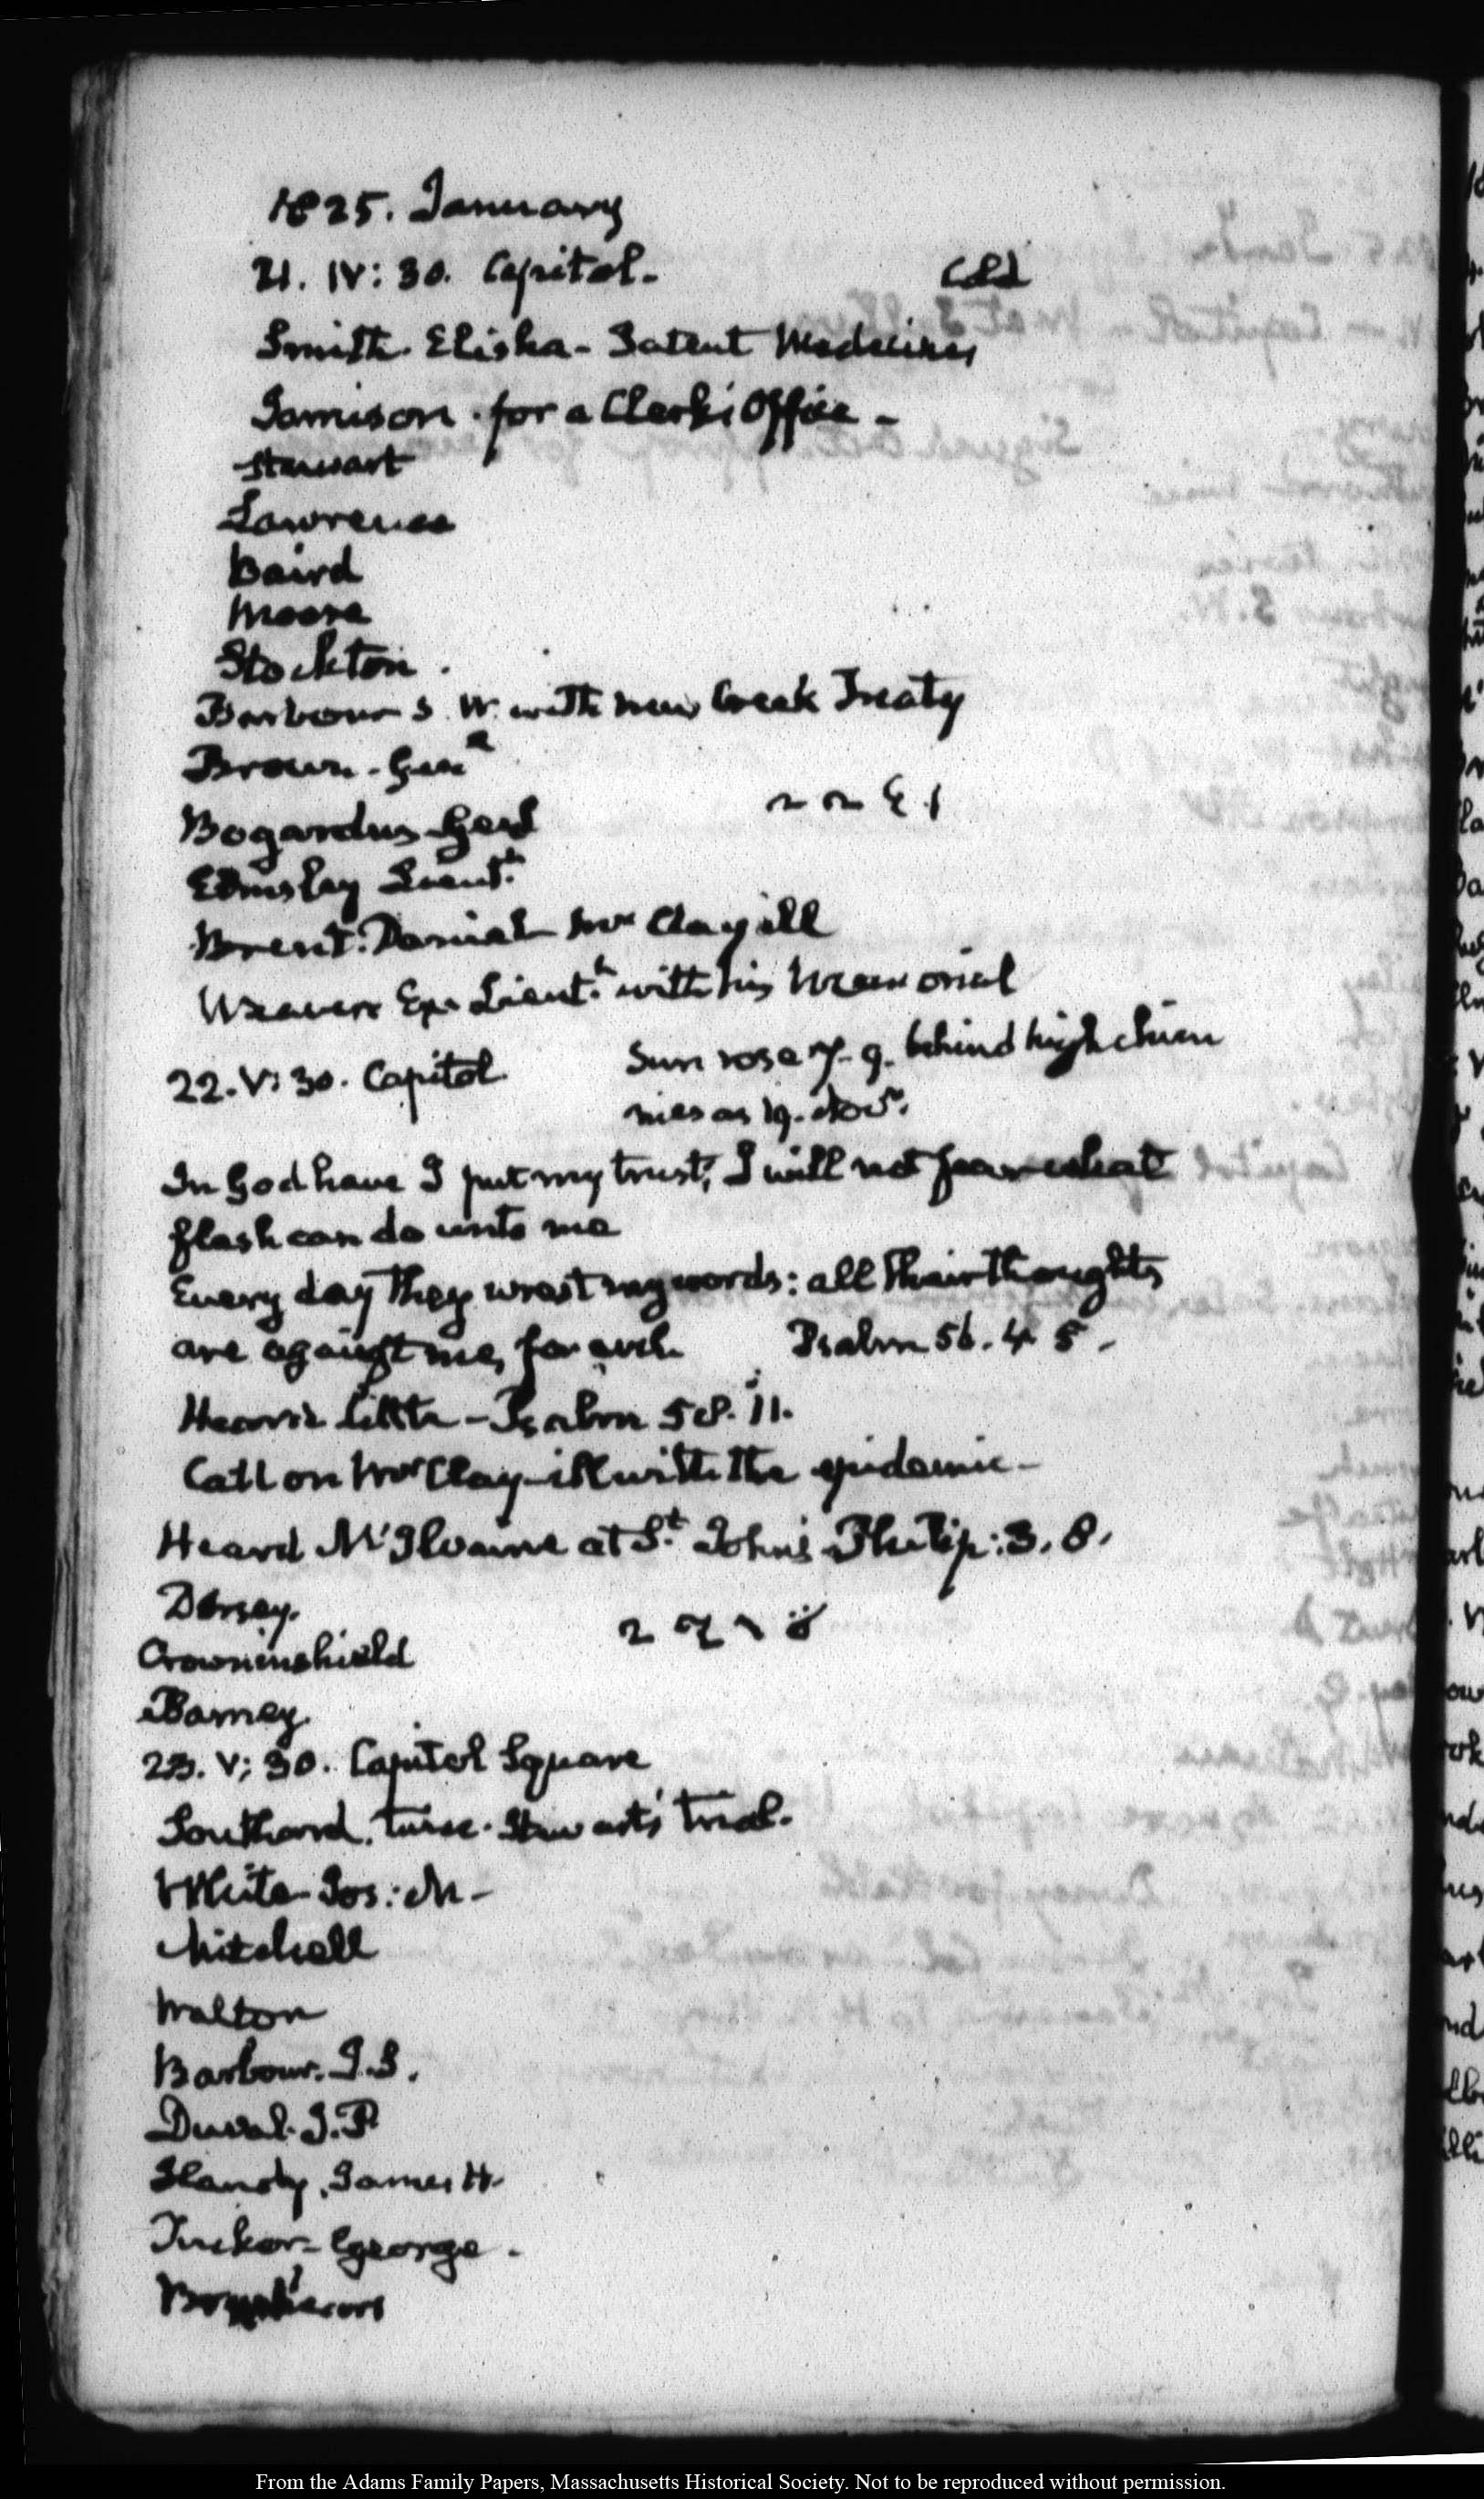 1825. January
21. IV: 30. Capitol. Cld
Smith. Elisha - Patent Medicines
Jamison. for a Clerk's Office -
Stewart
Lawrence
Baird
Moore
Stockton.
Barbour S. W. with new Creek Treaty
Brown. Genl
Bogardus Genl
Lieutt.
Brent. Daniel Mr Clay ill
Weaver Ex. Lieutt. with his Memorial
22. V: 30. Capitol Sun rose 7. 9. behind high chim
nies as 19. Novr.
In God have I put my trust, I will not fear what
flesh can do unto me
Every day they wrest my words: all their thoughts
are against me, for evil. Psalm 56. 4 5.
Heard Little - Psalm 58. 11.
Call on Mr Clay - ill with the epidemic -
Heard McIlvaine at St. John's Philip: 3. 8.
Dorsey.
Crowninshield
Barney.
23. V: 30. Capitol Square
Southard. twice. Stewart's trial.
White Jos: M -
Mitchell
Walton
Barbour. J. S.
Duval. J. P
Handy. James H.
Tucker - George.
From the Adams Family Papers, Massachusetts Historical Society. Not to be reproduced without permission.